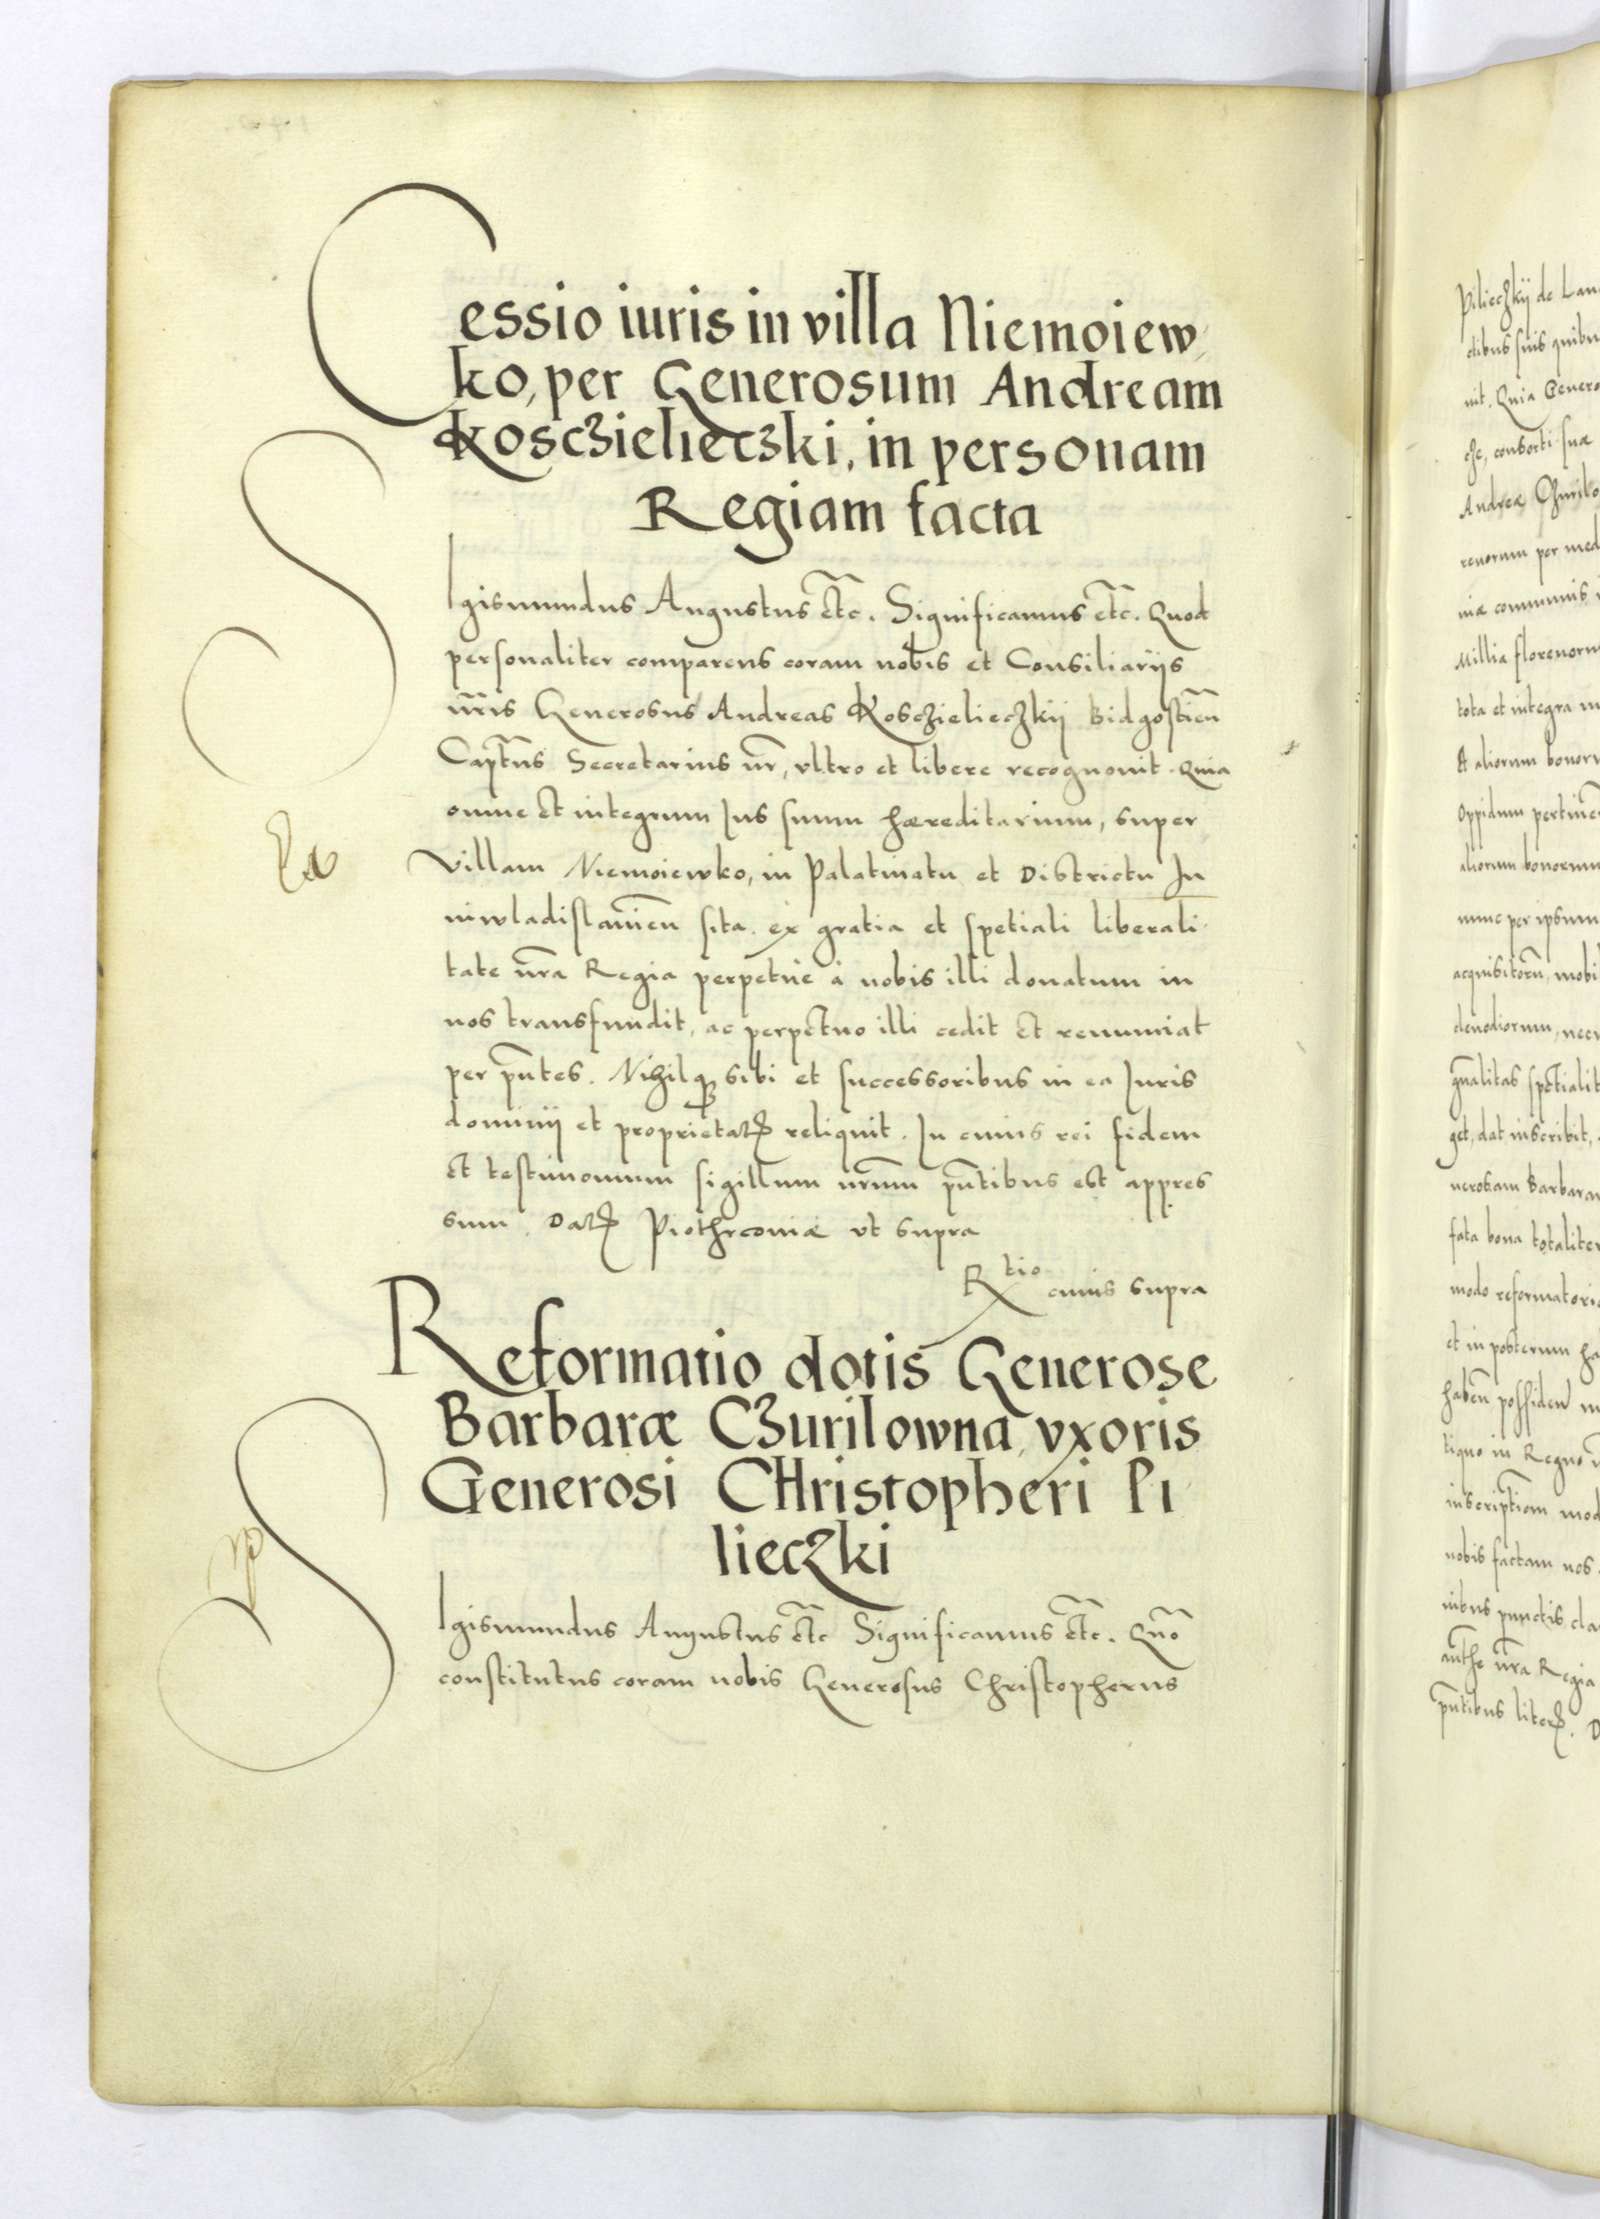 Cessio iuris in villa Niemoiew
ko, per Generosum Andream
Kosczielieczki, in personam
Regiam facta
Sigismundus Augustus etc. Significamus etc. Quod
personaliter comparens coram nobis et Consiliariis
nr̄is Generosus Andreas Kosczielieczkÿ Bidgostien̄
Capt̄ns Secretarius nr̄, ultro et libere recognovit. Quia
omne et integrum Ius suum hæreditarium, super
villam Niemoiewko, in Palatinatu et Districtu Iu
niwladislavien̄ sita ex gratia et spetiali liberali
tate nr̄a Regia perpetue à nobis illi donatum in
nos transfundit, ac perpetuo illi cedit et renunciat
per pn̄tes. Nihilq; sibi et successoribus in ea Iuris
dominÿ et proprietatꝭ reliquit. In cuius rei fidem
et testimonium sigillum nr̄um pn̄tibus est appres
sum. Datꝭ Piothrconiæ ut supra
Rtio cuius supra
Reformatio dotis Generose
Barbaræ Czurilowna, uxoris
Generosi Christopheri Pi
lieczki
Sigismundus Augustus etc Significamus etc. Quo
constitutus coram nobis Generosus Christopherus
Pilieczkÿ de Lan
ctibus suis quibu
nit. Quia Genero
consorti suæ
Andreæ Czurilo
renorum per med
niæ communis
Millia florenoru
tota et integra
Et aliorum bonoru
Oppidum pertinen̄
aliorum bonorum
nunc per ipsum
acquisitoru, mobi
denodiorum, necn
gn̄alitas spetialit
get, dat inscribit,
nerosam Barbaram
fata bona totaliter
modo reformatorio
et in posterum ha
haben̄ possiden̄
tiquo in Regno
inscriptiom mod
nobis factam nos
nibus punctis cla
nr̄a Regia
pn̄tibus literꝭ. D